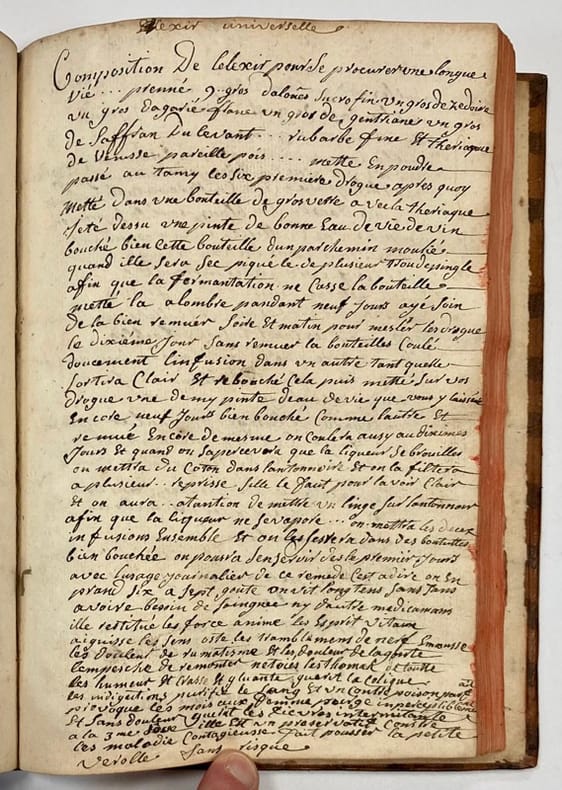 Elexir universelle
Composition De Lelexir pour se procurer une longue
vié ... prenné 9 gros daloués Sucrofin un gros de zedoire
un gros dagarié blanc un gros de gentiane un gros
de Saffran Du levant ... rubarbe fine Et theriaque
de venisse pareille pois .... mette En poudre
passé au tamy les six premiere drogue apres quoy
Metté dans une bouteille de gros verre avec la theriaque
Jeté dessu une pinte de bonne Eau de vie de vin
bouché bien Cette bouteille dun parchemin mouilié
quand ille sera sec piqué le de plusieur trou despingle
afin que la fermantation ne Casse la bouteille
mette la a lombre pandant neuf Jours ayé soin
de la bien remuér soire Et matin pour mesler les drogue
le dixiéme Jour sans remuer la bouteilles Coulé
doucement linfusion dans un autre tant quelle
sortira Clair Et rebouché Cela puis metté sur vos
drogue une demy pinte deau de vie que vous y laisseré
Encore neuf Jours bien bouché Comme lautre Et
remué Encore de mesme on Coulera ausy au diximes
Jours Et quand on sapercevera que la liqueur se brouilles
on mettra du Coton dans lantonnoire Et on la filtera
a plusieur represse sille le faut pour lavoir Clair
Et on aura atantion de mettre un linge sur lantonnoir
afin que la liqueur ne sevapore ... on mettra les deux
infusions Ensemble Et on les sestera dans des bouteilles
bien bouchée on poura sen servir des le premier Jours
avec lusage Journalier de ce remede Cest a dire on En
prand six a sept goute on vit longtens sans
avoire besoin de saingnee ny dautre medicamans
ille restitue les force anime les Esprit vitaux
aiguisse les sens oste les tramblemens de nerf Emousse
les douleur de rumatisme Et les douleur de la goutte
lampesche de remonter netoiés lesthomak de toutte
les humeur Et Crasse Et gluante guerit la Colique
les indigections purifie le sang Et un Contre poison parfait
provoque les mois aux femme purge inperceptiblement
Et sans douleur guerit les fievres intermitante
a la 3me ille Est un preservatif Contre
les maladie Contagieusse fait pousser la petite
verolle sans risque